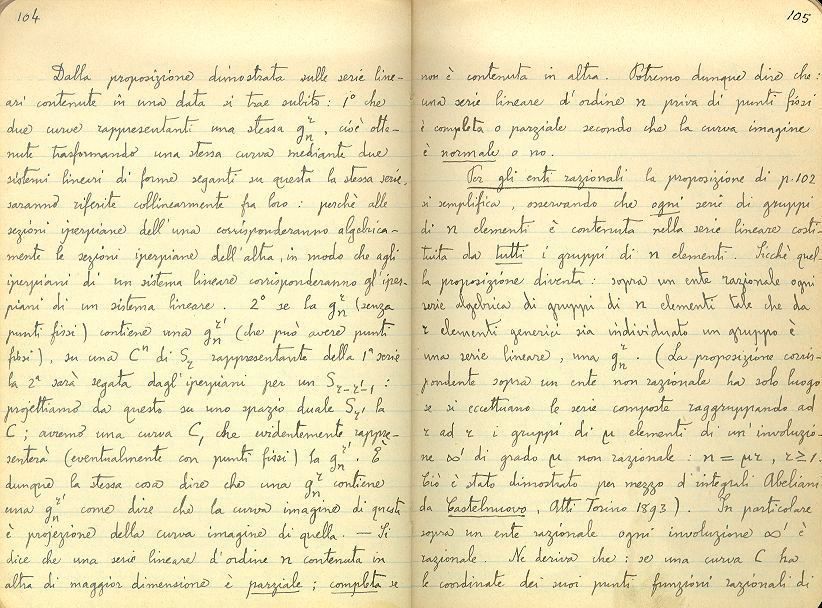 104
Dalla proposizione dimostrata sulle serie line-
ari contenute in una data si trae subito: 1° che
due curve rappresentanti una stessa gₙʳ, cioè otte-
nute trasformando una stessa curva mediante due
sistemi lineari di forme seganti su questa la stessa serie,
saranno riferite collinearmente fra loro: perchè alle
sezioni iperpiane dell'una corrisponderanno algebrica-
mente le sezioni iperpiane dell'altra, in modo che agli
iperpiani di un sistema lineare corrisponderanno gl'iper-
piani di un sistema lineare. 2° se la gₙʳ (senza
punti fissi) contiene una gₙʳ' (che può avere punti
fissi), su una Cⁿ di Sᵣ rappresentante della 1ª serie
la 2ª sarà segata dagl'iperpiani per un Sᵣ₋ᵣ'₋₁:
projettiamo da questo su uno spazio duale Sᵣ' la
C; avremo una curva C₁ che evidentemente rappre-
senterà (eventualmente con punti fissi) la gₙʳ'. È
dunque la stessa cosa dire che una gₙʳ contiene
una gₙʳ' come dire che la curva imagine di questa
è projezione della curva imagine di quella. — Si
dice che una serie lineare d'ordine n contenuta in
altra di maggior dimensione è parziale; completa se
105
non è contenuta in altra. Potremo dunque dire che:
una serie lineare d'ordine n priva di punti fissi
è completa o parziale secondo che la curva imagine
è normale o no.
Per gli enti razionali la proposizione di p. 102
si semplifica, osservando che ogni serie di gruppi
di n elementi è contenuta nella serie lineare costi-
tuita da tutti i gruppi di n elementi. Sicchè quel-
la proposizione diventa: sopra un ente razionale ogni
serie algebrica di gruppi di n elementi tale che da
r elementi generici sia individuato un gruppo è
una serie lineare, una gₙʳ. (La proposizione corris-
pondente sopra un ente non razionale ha solo luogo
se si eccettuano le serie composte raggruppando ad
r ad r i gruppi di μ elementi di un'involuzio-
ne ∞¹ di grado μ non razionale: n = μr, r≥1.
Ciò è stato dimostrato per mezzo d'integrali Abeliani
da Castelnuovo, Atti Torino 1893). In particolare
sopra un ente razionale ogni involuzione ∞¹ è
razionale. Ne deriva che: se una curva C ha
le coordinate dei suoi punti funzioni razionali di